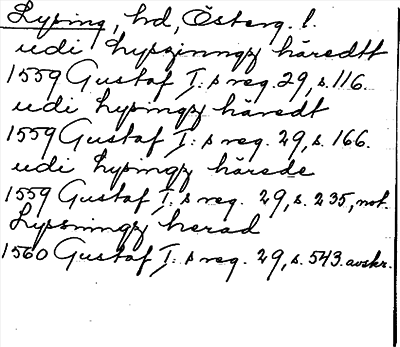 Lysing, hd, Österg. l.
udi Lyszinngz häredtt
1559 Gustaf I:s reg. 29, s. 116.
udi Lysingz häredt
1559 Gustaf I:s reg. 29, s. 166.
udi Lysingz härede
1559 Gustaf I:s reg. 29, s. 235, not.
Lyssningz herad
1560 Gustaf I:s reg. 29, s. 543. avskr.